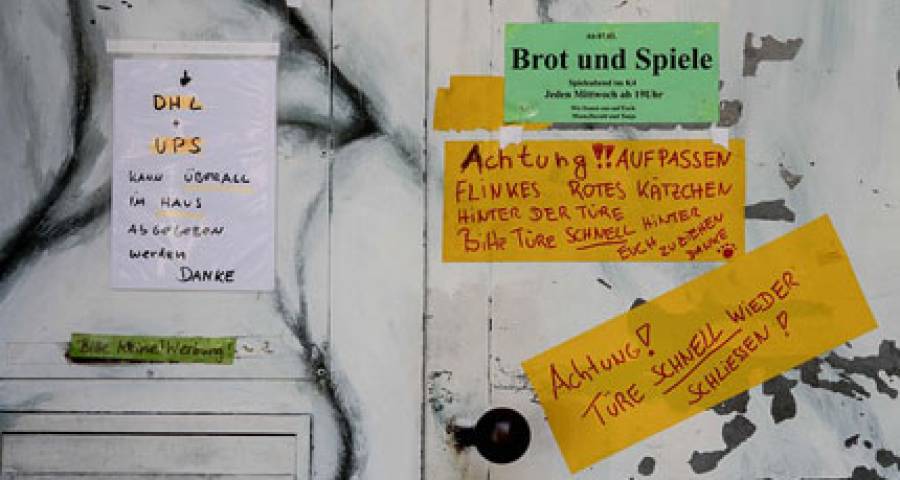 DHL
+
UPS
KANN ÜBERALL
IM HAUS
ABGEGEBEN
werden
DANKE
Bitte keine Werbung
Ab 07.03.
Brot und Spiele
Spieleabend im K4
Jeden Mittwoch ab 19Uhr
Wir freuen uns auf Euch
Achtung!! AUFPASSEN
FLINKES ROTES KÄTZCHEN
HINTER DER TÜRE
Bitte TÜRE SCHNELL HINTER
EUCH ZUZIEHEN
DANKE
Achtung!
TÜRE SCHNELL WIEDER
SCHLIESSEN!